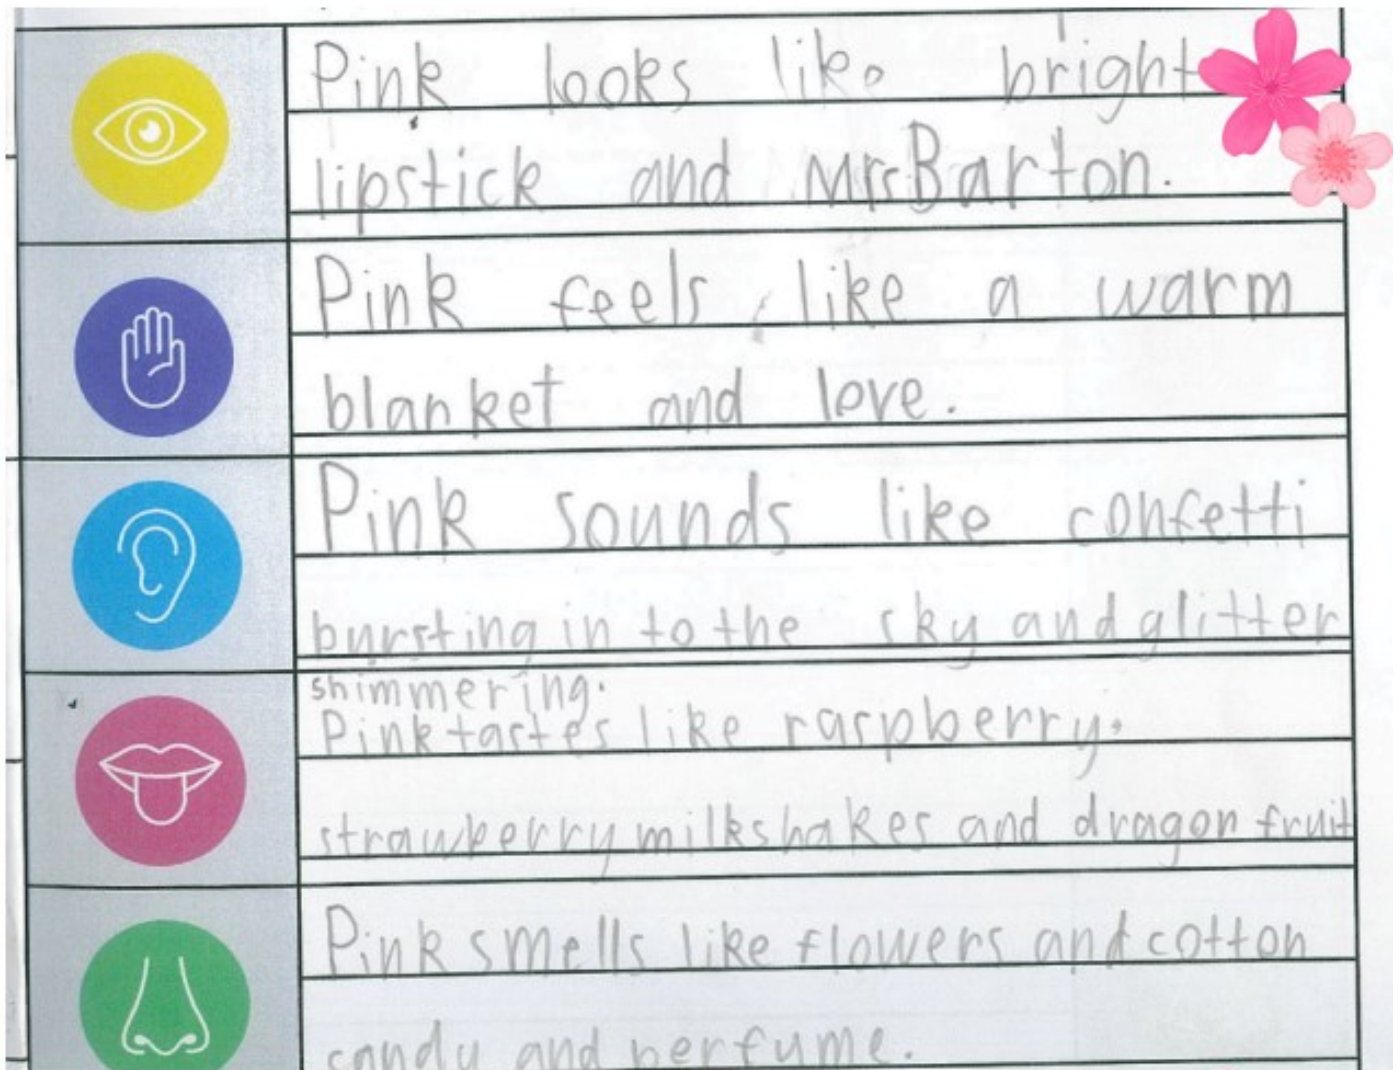 Pink looks like bright
lipstick and MrsBarton.
Pink feels like a warm
blanket and love.
Pink sounds like confetti
bursting in to the sky and glitter
shimmering.
Pink tastes like raspberry.
strawberry milkshakes and dragon fruit
Pink smells like flowers and cotton
candy and perfume.